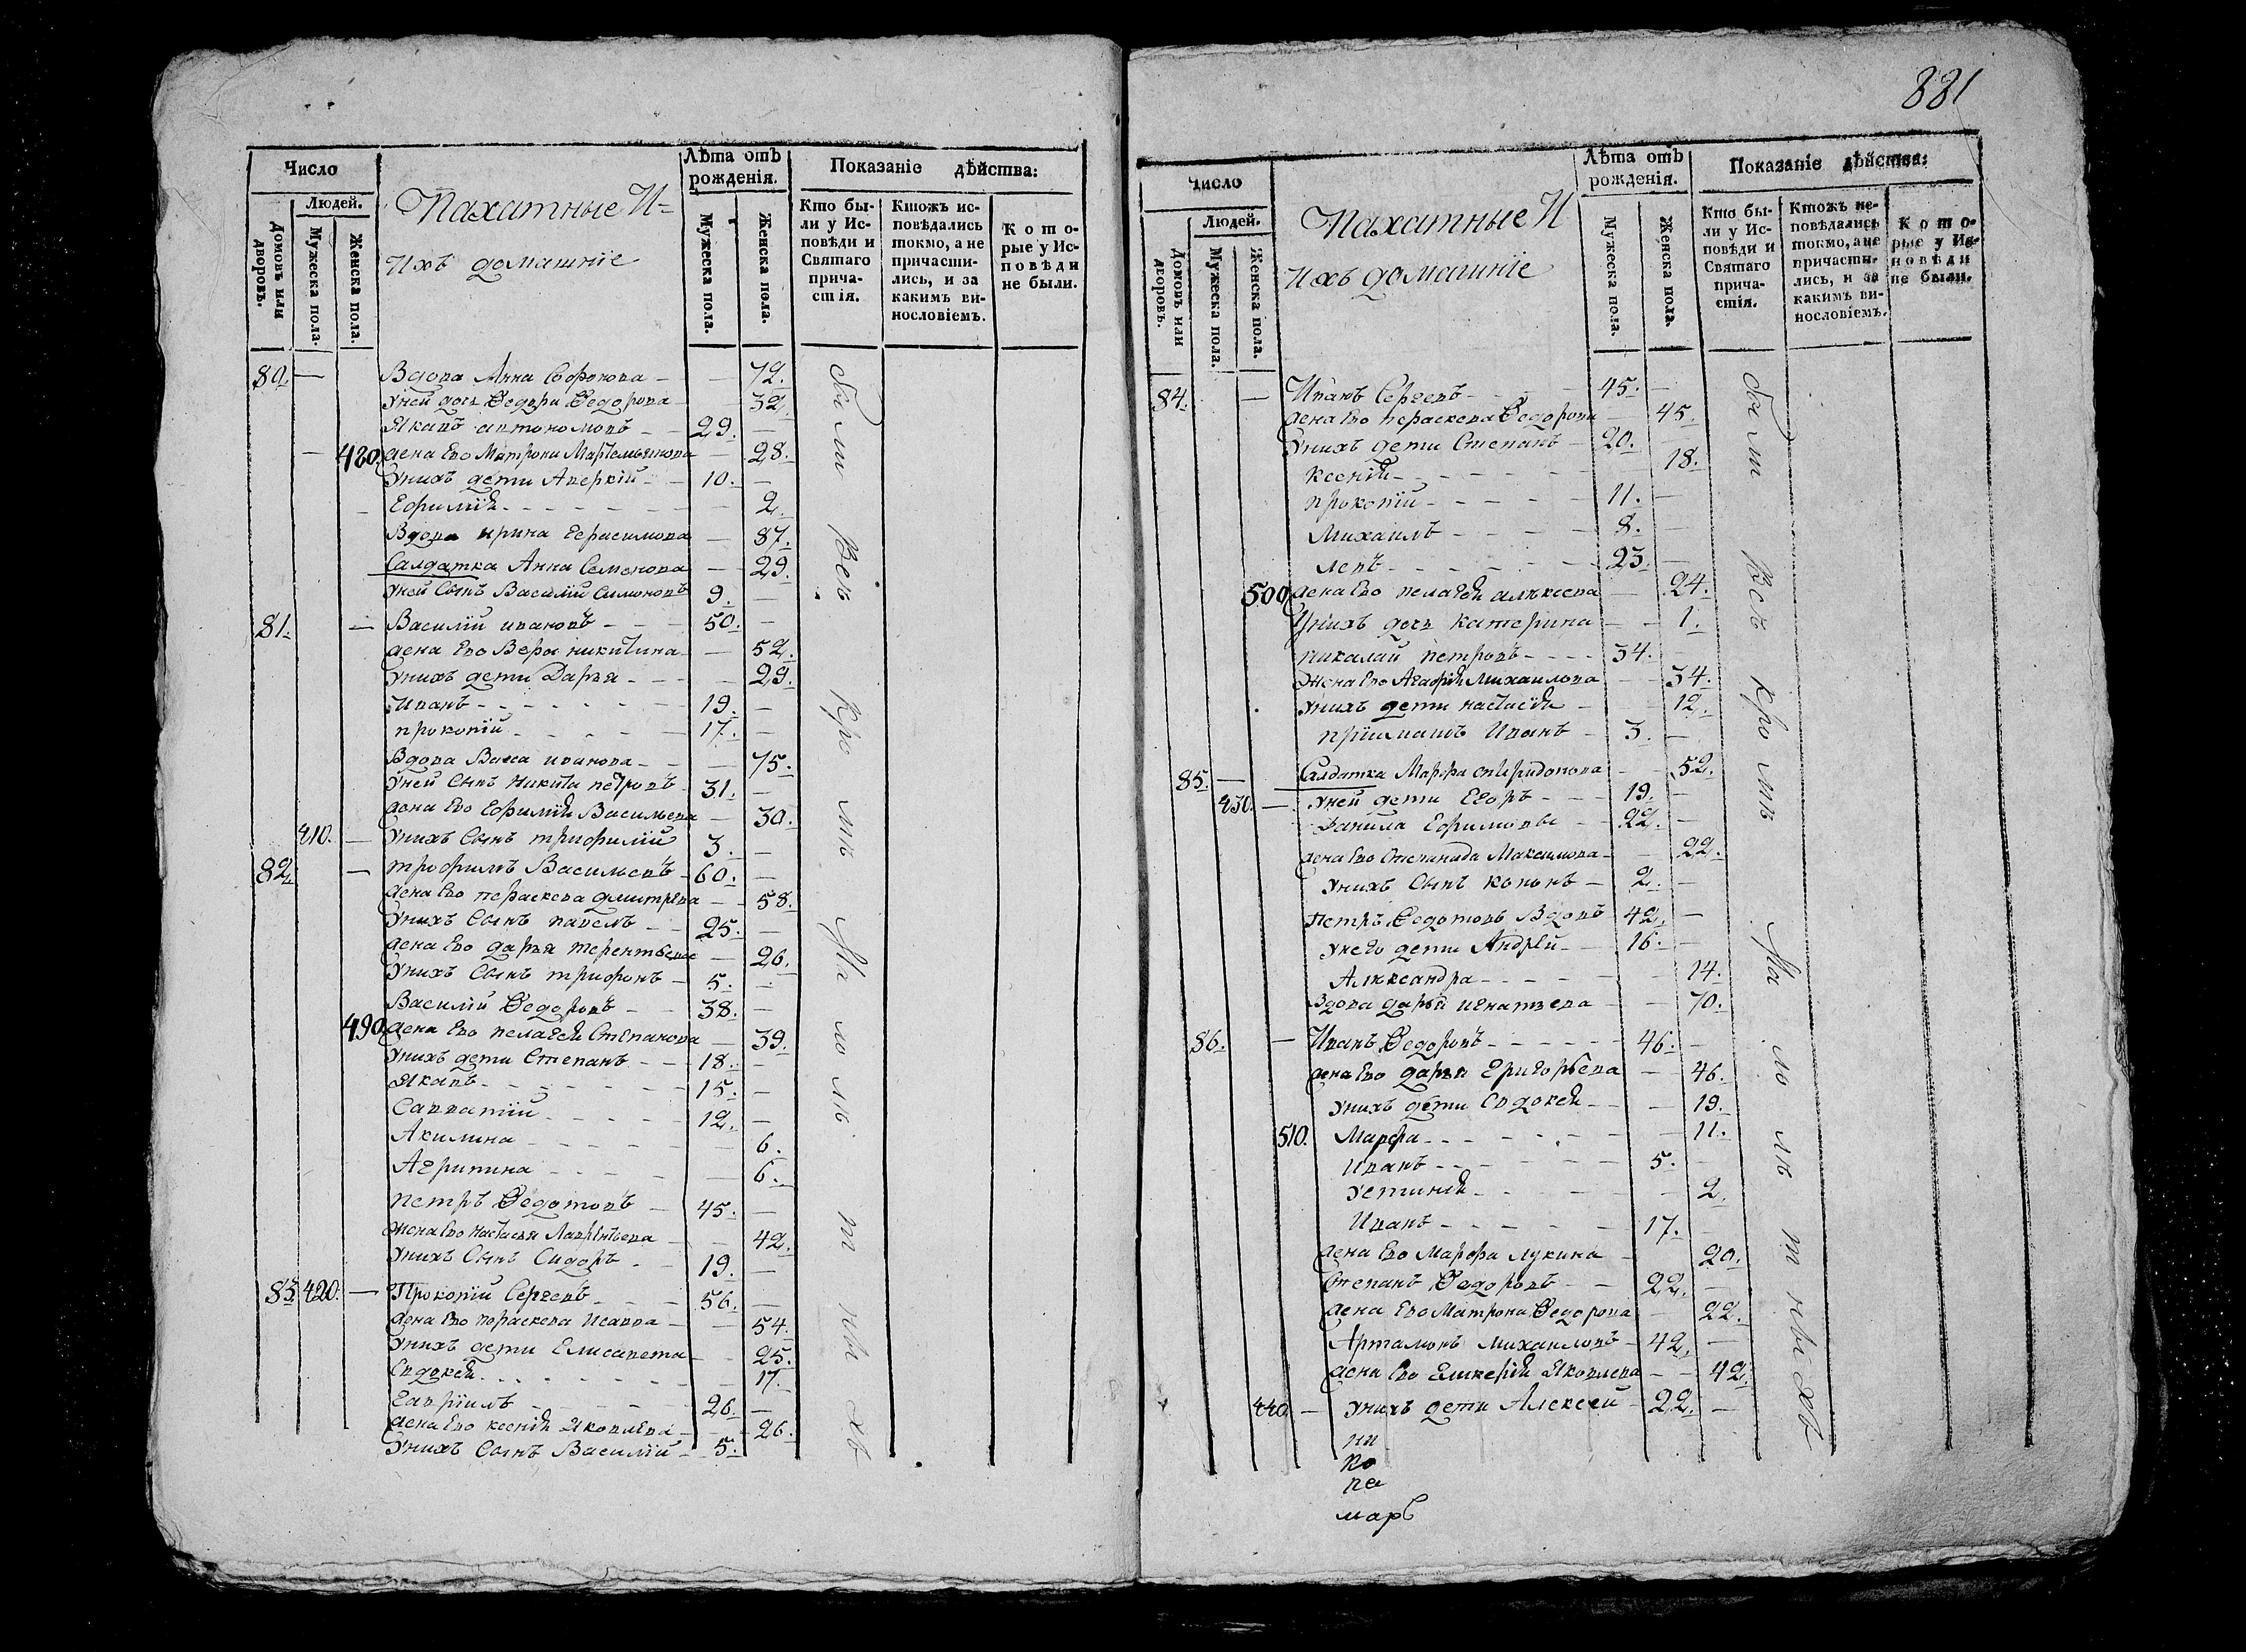 881
Число
Людей.
Домовъ или дворовъ.
Мужеска пола.
Женска пола.
Пахатные И=
Ихъ домашнïе
Лѣта отъ рожденїя.
Мужеска пола.
Женска пола.
Показанїе дѣйства:
Кто бы-
ли у Ис-
повѣди и
Святаго
прича-
стїя.
Ктожъ ис-
повѣдались
токмо, а не
причасти-
лись, и за
какимъ ви-
нословїемъ.
Кото-
рые у Ис-
повѣди
не были.
80. — Вдова Анна Софронова — — 72.
Уней дочь Ѳедора Ѳедорова — 32
Якавъ автономовъ — — 29. —
— 480. жена Ево Матрона Мартемьянова — 28.
Унихъ дети Аверкїй — — 10. —
Ефимїя — — 2.
Вдова ирина Герасимова — 87.
Салдатка Анна Семенова — 29.
Уней Сынъ Василїй Симоновъ 9. —
81. — Василїй ивановъ — — 50. —
жена Ево Вера никитина — 52.
Унихъ дети Дарья — — 29.
Иванъ — — 19. —
прокопїй — — 17. —
Вдова Васса иванова — — 75.
Уней Сынъ Никита петровъ 31. —
жена Ево Ефимїя Васильева — 30.
410. — Унихъ Сынъ трифилїй 3. —
82. — трофимъ Васильевъ — 60. —
жена Ево параскева дмитрева — 58.
Унихъ Сынъ павелъ — — 25. —
жена Ево дарья терентьева — 26.
Унихъ Сынъ трифонъ — 5. —
Василїй Ѳедоровъ — — 38. —
490. жена Ево пелагея Степанова — 39.
Унихъ дети Степанъ — — 18. —
Якавъ — — 15. —
Савватїй — — 12. —
Акилина — — 6.
Агрипина — — 6.
петръ Ѳедотовъ — 45. —
жена Ево настасья Лаврентьева — 42.
Унихъ Сынъ Сидоръ — 19. —
83. 420. — Прокопїй Сергевъ — — 56. —
жена Ево параскева Исаева — — 54.
Унихъ дети Елисавета — — 25.
Евдокея — — 17.
Гаврїилъ — — 26. —
жена Ево ксенїя Яковлева — — 26.
Унихъ Сынъ Василїй — 5. —
Число
Людей.
Домовъ или дворовъ.
Мужеска пола.
Женска пола.
Пахатные И
Ихъ домашнïе
Лѣта отъ рожденїя.
Мужеска пола.
Женска пола.
Показанїе дѣйства:
Кто бы-
ли у Ис-
повѣди и
Святаго
прича-
стїя.
Ктожъ ис-
повѣдались
токмо, а не
причасти-
лись, и за
какимъ ви-
нословїемъ.
Кото-
рые у Ис-
повѣди
не были.
84. — Иванъ Сергевъ — — 45. —
жена Ево параскева Ѳедорова — 45.
Унихъ дети Степанъ — 20. —
Ксенїя — — 18.
прокопїй — — 11. —
Михаилъ — — 8. —
левъ — — 23. —
500. жена Ево пелагея алексева — 24.
Унихъ дочь катерина — — 1.
николай петровъ — — 34. —
жена Ево Агафїя Михаилова — — 34.
Унихъ дети настасїя — — 12.
прїимышъ Иванъ — 3. —
85. — Салдатка Марфа спиридонова — — 52.
430. — Уней дети Егоръ — — 19. —
Данила Ефимовы — — 22. —
жена Ево Степанида Максимова — — 22.
Унихъ Сынъ кононъ — 2. —
Петръ Ѳедотовъ Вдовъ 42. —
Унего дети Андрей — — 16. —
Александра — — 14.
Вдова дарья игнатьева — — 70.
86. — Иванъ Ѳедоровъ — — 46. —
жена Ево дарья Григорьева — — 46.
Унихъ дети Евдокея — — 19.
510. Марфа — — 11.
Иванъ — — 5. —
Устинья — — 2.
Иванъ — — 17. —
жена Ево Марфа лукина — 20.
Степанъ Ѳедоровъ — — 22. —
жена Ево Матрона Ѳедорова — 22.
Артамонъ Михаиловъ — 42. —
жена Ево Гликерїя Яковлева — — 42.
440. — Унихъ дети Алексей — 22. —
ни
ко
ла
марь